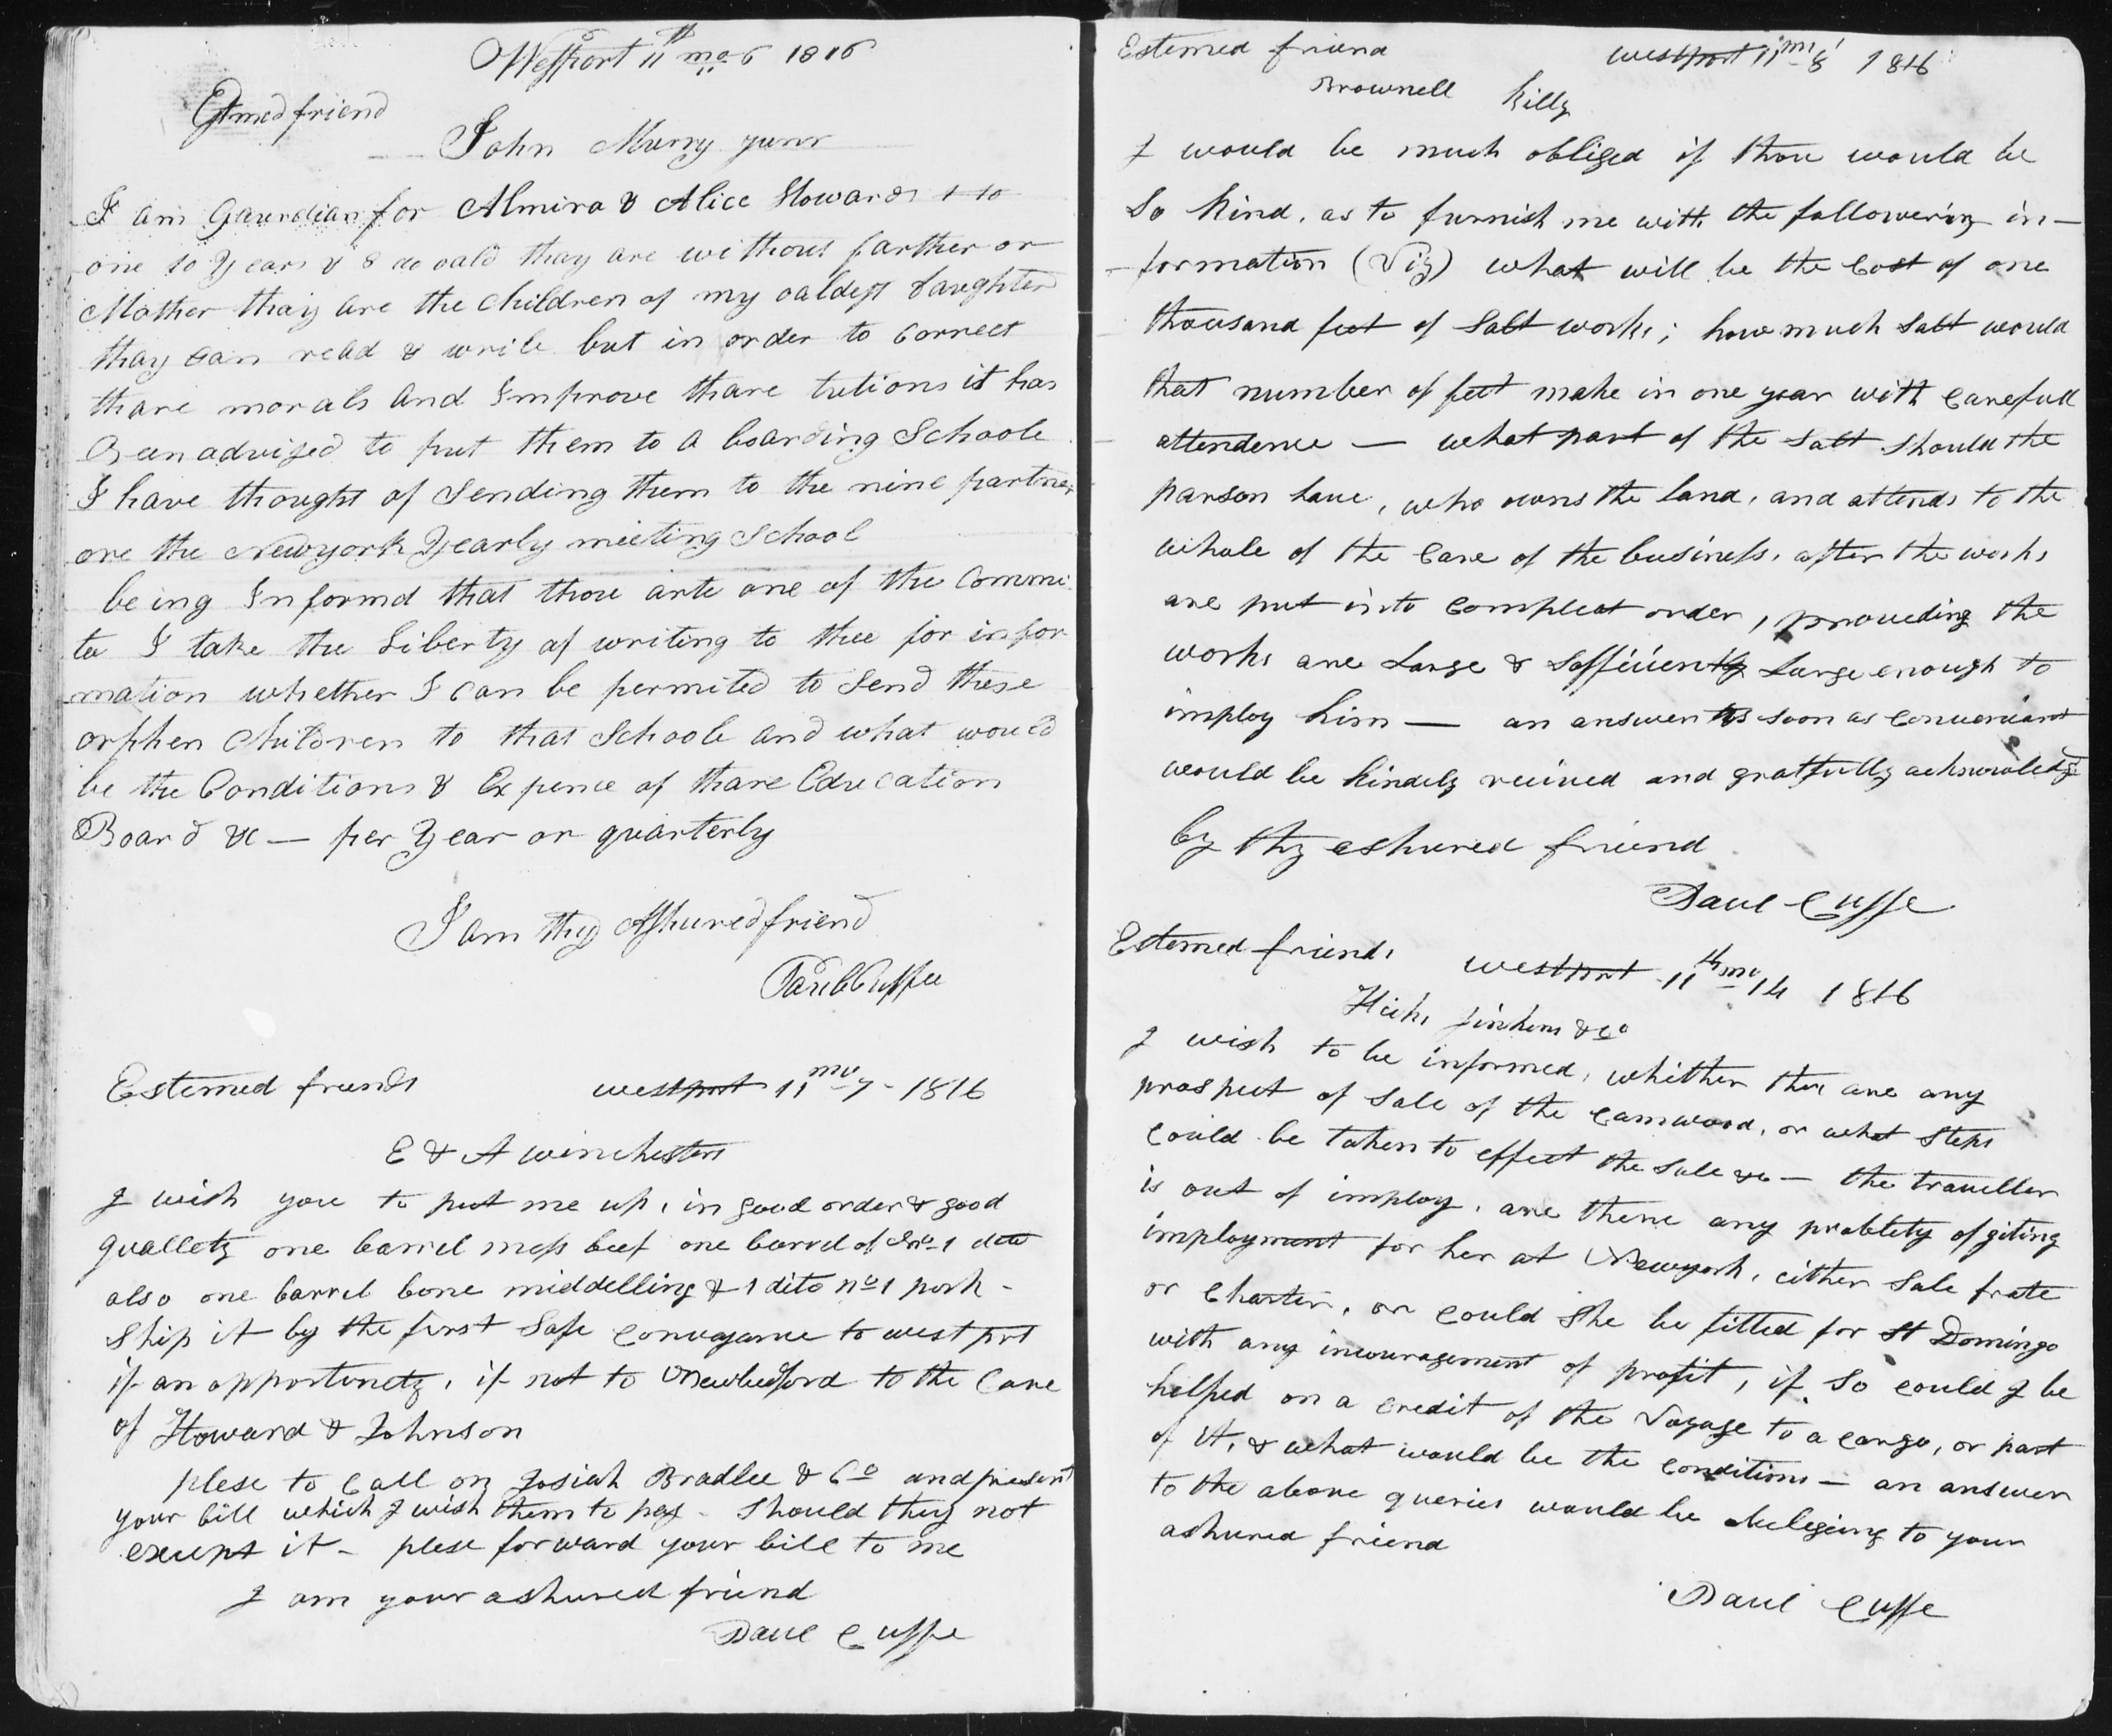 Westport 11th mo 6 1816
Estmed friend
John Murry junr
I am Gaurdian for Almira & Alice Howards
one 10 Years & 8 do oald thay are without farther or
Mother thay are the children of my oaldest daughter
thay can read & write but in order to correct
thare morals and Improve thare tutions it has
Ben advised to put them to a boarding Schoole
I have thought of Sending them to the nine partners
ore the Newyork Yearly meeting School
being Informd that thou arte one of the Commi
te I take the Liberty of writing to thee for infor
mation whether I can be permited to Send these
orphen Children to that Schoole and what would
be the Conditions & Expence of thare Education
Board &c — per Year or quarterly
I am thy Ashured friend
Paul Cuffee
Estemed friends westport 11 mo 7 - 1816
E & A winchesters
I wish you to put me up, in good order & good
quallety one barrel mess beef one barrel of No 1 ditto
also one barrel bone middelling & 1 dito no 1 pork -
Ship it by the first Safe convayance to westport
if an opportunety, if not to Newbedford to the Care
of Howard & Johnson
plese to Call on Josiah Bradlee & Co and present
your bill which I wish them to pay - Should they not
except it - plese forward your bill to me
I am your ashured friend
Paul Cuffe
Estemed friend westport 11 mo 8 1816
Brownell Killy
I would be much obliged if thou would be
So Kind, as to furnish me with the followering in-
-formation (Viz) what will be the Cost of one
thousand feet of Salt works; how much Salt would
that number of feet make in one year with Carefull
attendence — what part of the Salt Should the
parson have, who owns the land, and attends to the
whole of the Care of the business, after the works
are put into Compleat order, proveding the
works are Large & Sofficiently Large enough to
imploy him — an answer as soon as Convenient
would be Kindely recived and gratfully acknowledgd
by thy ashured friend
Paul Cuffe
Estemed friends westport 11th mo 14 1816
Hicks Jinkens & Co
I wish to be informed, whither ther are any
prospect of Sale of the Camwood, or what Steps
Could be taken to effect the Sale &c — the traveller
is out of imploy, are there any problety of giting
imployment for her at Newyork, either Sale frate
or Charter, or could She be fitted for St Domingo
with any incouragement of profit, if So could I be
helped on a Credit of the Voyage to a cargo, or part
of it, & what would be the Conditions — an answer
to the above queries would be obelegeing to your
ashured friend
Paul Cuffe